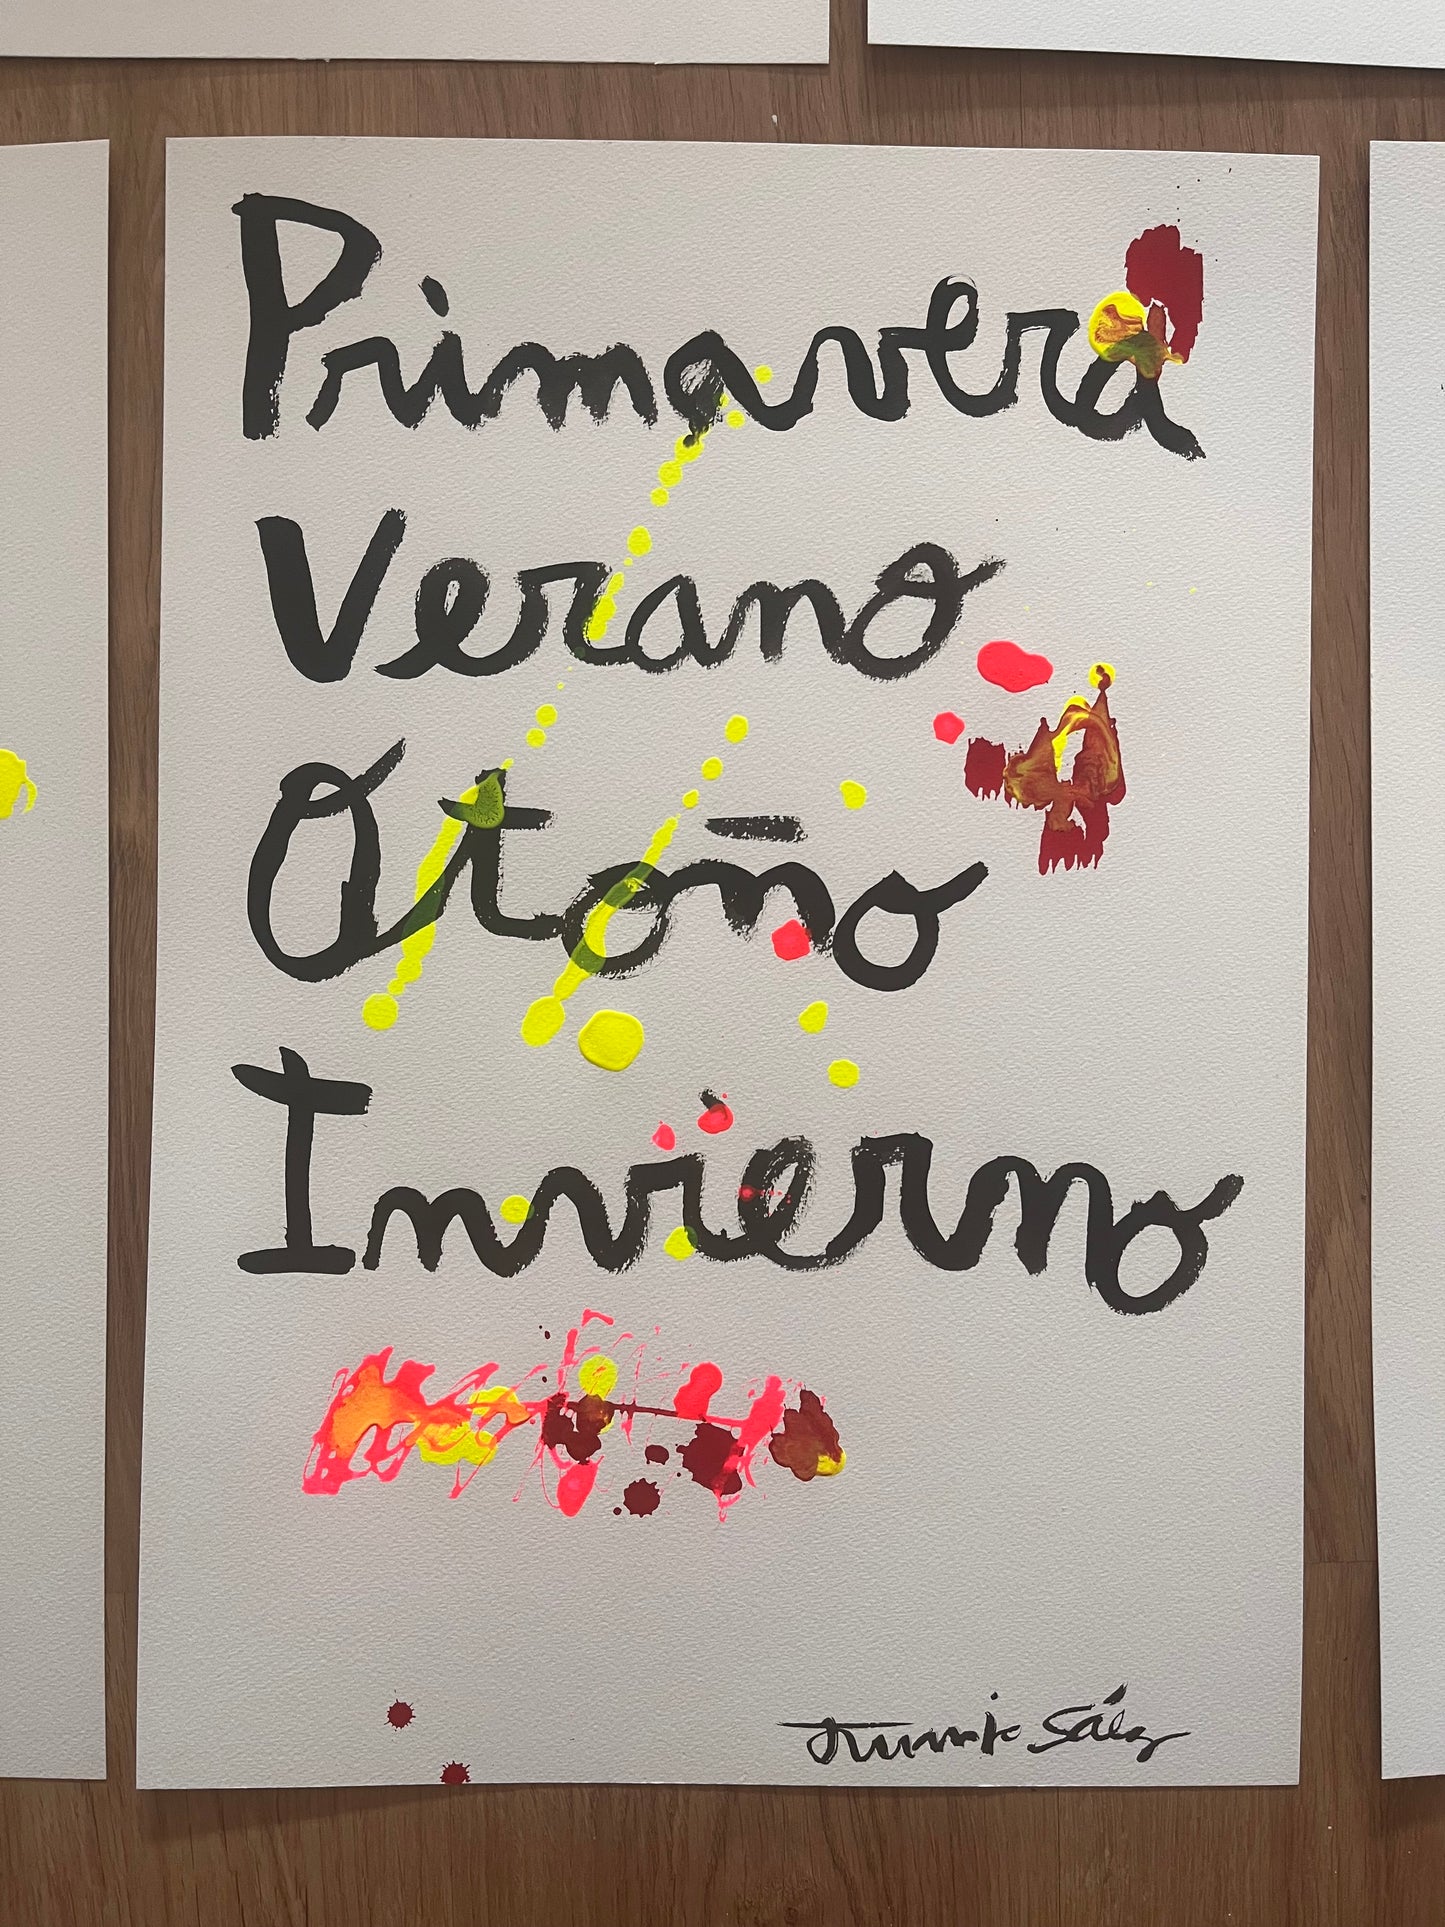 Primavera
Verano
Otoño
Invierno
Juanjo Sáez